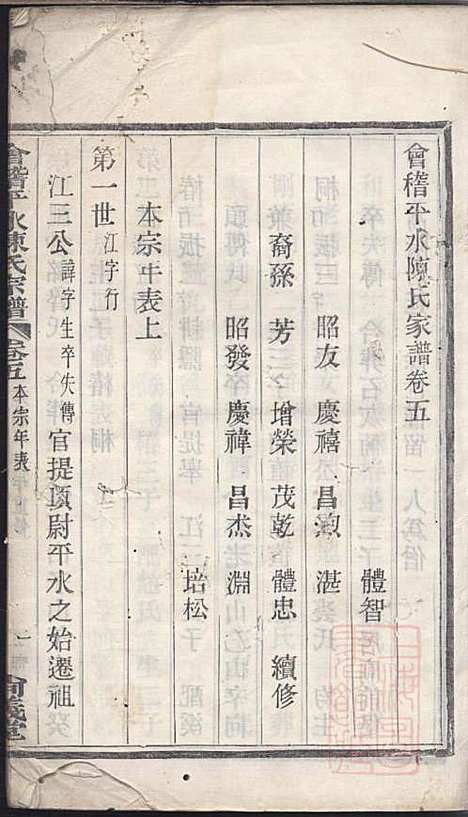 會稽平水陳氏家譜卷五
體智
昭友 慶禧 昌勲 湛
裔孫 芳三 增榮 茂乾 體忠 續修
昭發 慶禕 昌杰 淵
培松
本宗年表上
第一世江字行
江三公諱字生卒失傳官提領尉平水之始遷祖
會稽平水陳氏宗譜 卷五 本宗年表 一